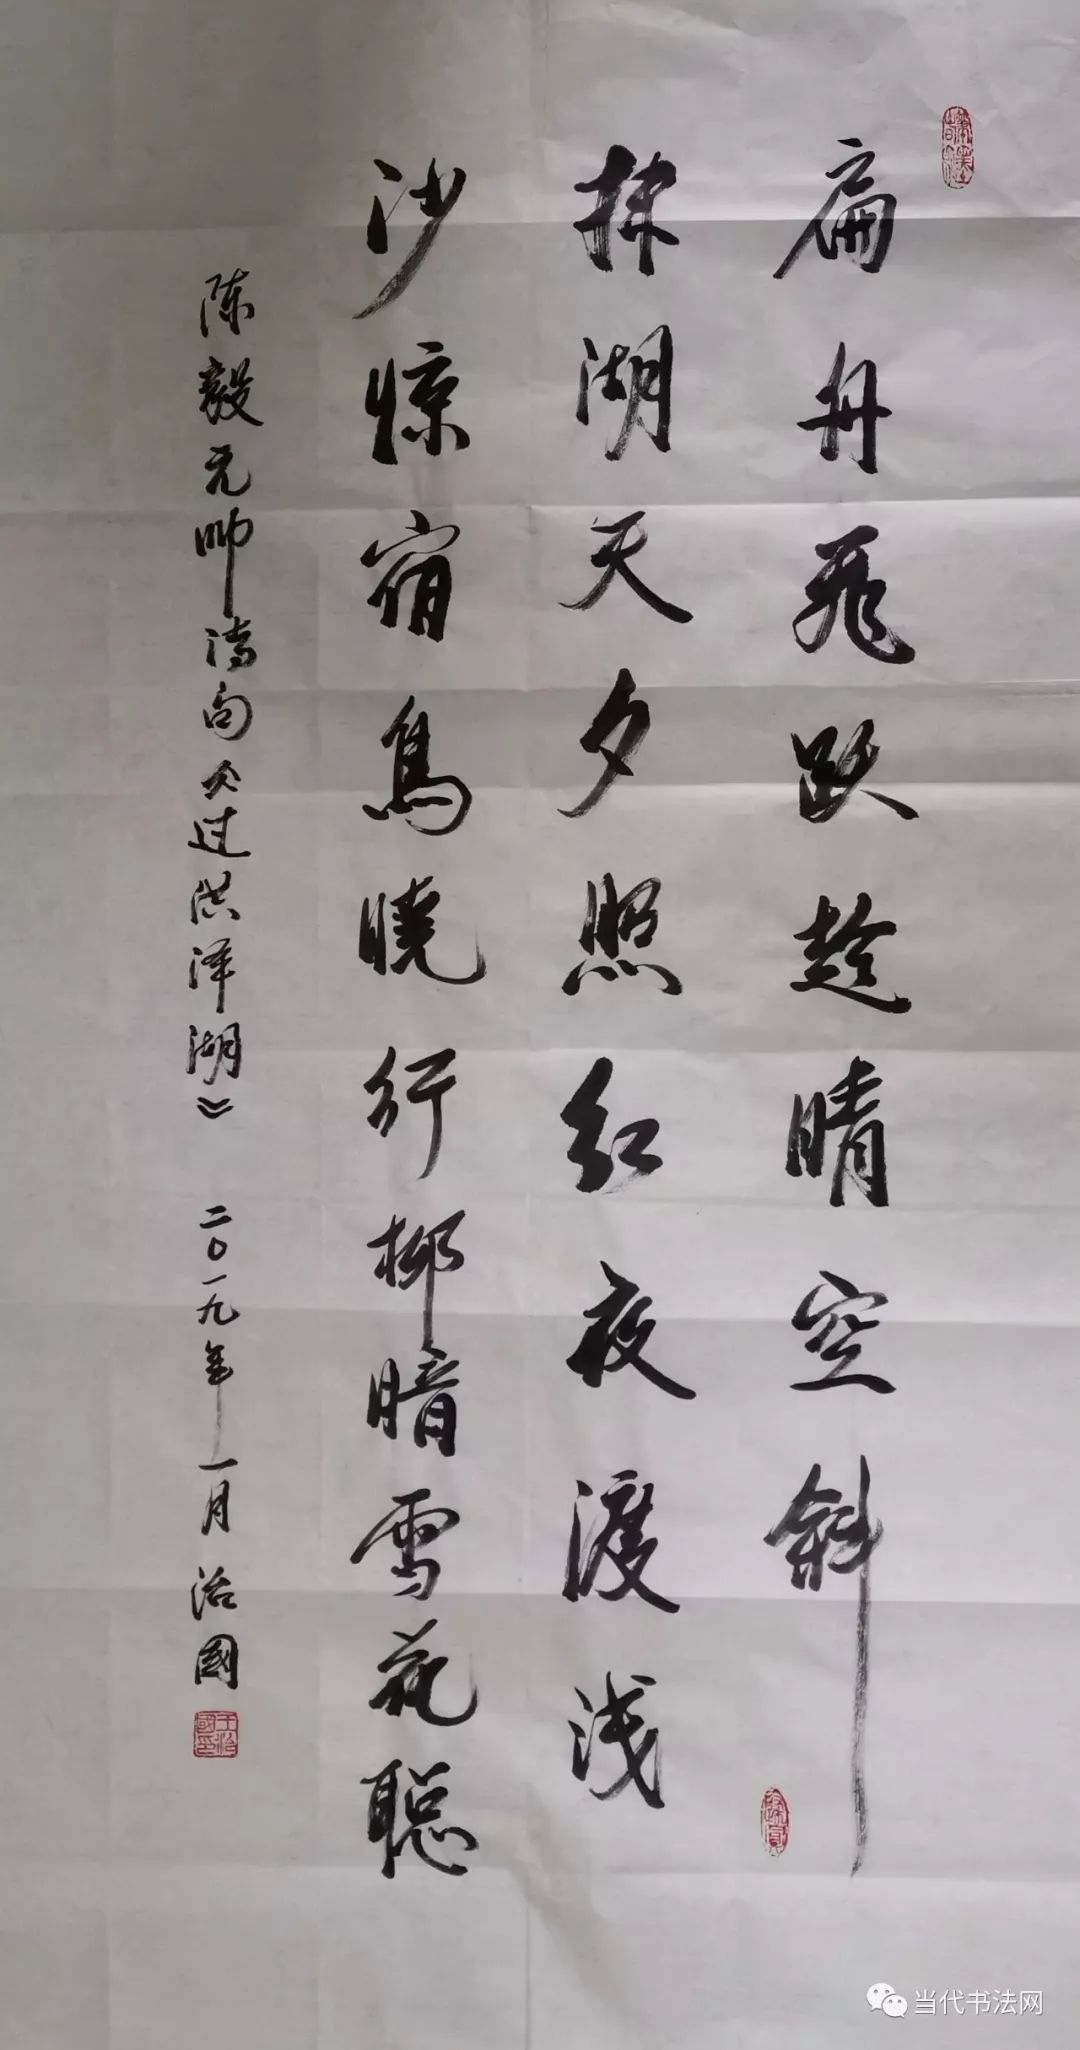 扁舟飛跃趁晴空斜
抹湖天夕照红夜渡浅
沙惊宿鳥曉行柳暗雪花聪
陈毅元帅诗句《过洪泽湖》 二〇一九年一月 治國
王治國印
当代书法网